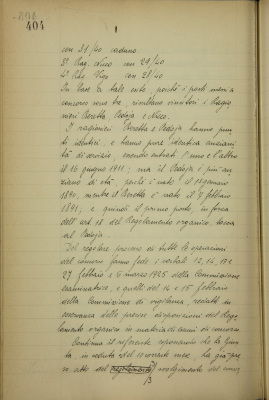 404
1
con 31/40 cadauno
3° Rag. Neco con 29/40
4° Rag. Vigo con 28/40
In base a tale esito, poiché i posti messi a
concorso sono tre, risultano vincitori i Ragio
nieri Beretta, Bedoja e Neco.
I ragionieri Beretta e Bedoja hanno pun
ti identici, e hanno pure identica anziani
tà di servizio, essendo entrati l'uno e l'altro
il 16 giugno 1911; ma il Bedoja è più an
ziano di età, perché è nato il gennaio
1890, mentre il Beretta è nato il 7 febbraio
1891, e quindi il primo posto, in forza
dell'art. 18 del Regolamento organico, tocca
al Bedoja.
Del regolare processo di tutte le operazioni
del concorso fanno fede i verbali 12, 16, 19 e
27 febbraio e 5 marzo 1925 della Commissione
esaminatrice, e quelli del 14 e 15 febbraio
della Commissione di vigilanza, redatti in
osservanza delle precise disposizioni del Rego
lamento organico in materia di esami di concorso.
Continua il referente esponendo che la Giun
ta in seduta del corrente mese, ha già pre
so atto del svolgimento del concor
13